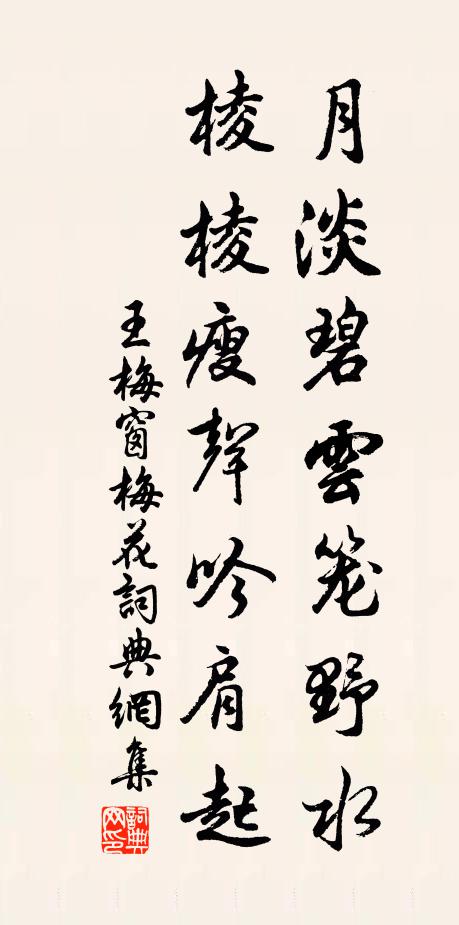 月淡碧雲笼野水
棱棱瘦聲吟肩起
王梅窗梅花詞典網集
詞典網印